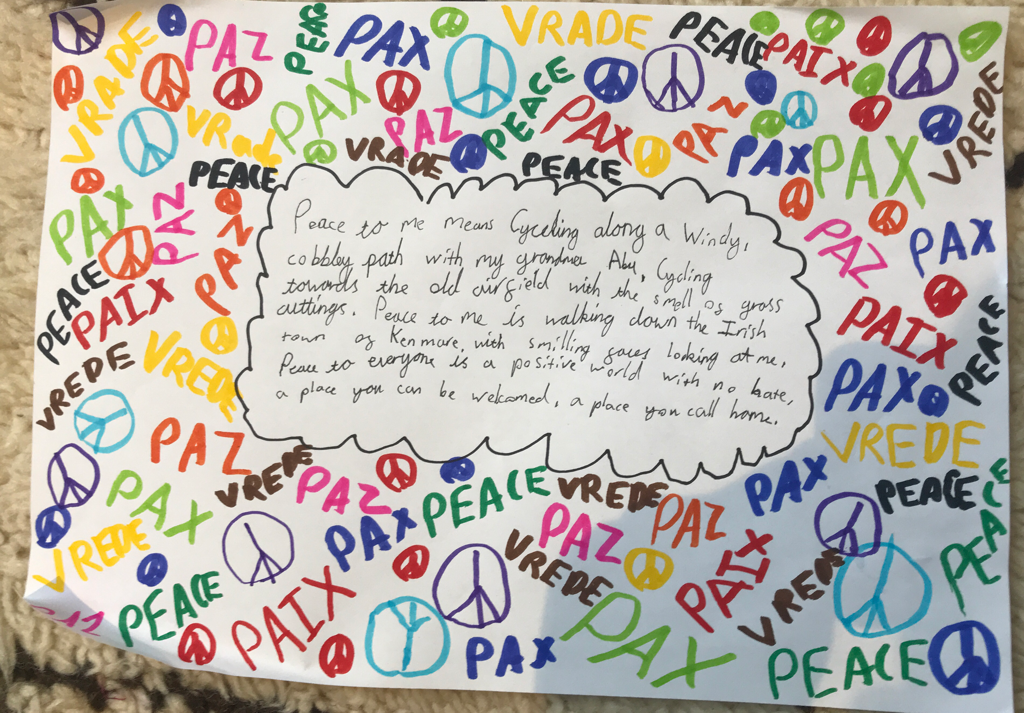 VRADE PAZ PEACE PAX VRADE PEACE PAIX
VRADE
VRADE PAX PAZ PEACE PAX PAZ PAX PAX VREDE
PEACE VRADE PEACE
PAX PAZ PAZ PAZ PAX
PEACE PAIX PAIX PEACE
VREDE VREDE PAX
Peace to me means Cycling along a Windy,
cobbley path with my grandma Abu, Cycling
towards the old airfield with the smell of grass
cuttings. Peace to me is walking down the Irish
town of Kenmare, with smilling faces looking at me.
Peace to everyone is a positive world with no hate,
a place you can be welcomed, a place you call home.
PAZ VREDE
VREDE PAZ PEACE VREDE PAX PEACE
PAX PAX PAZ PAZ PEACE
VREDE VREDE PAIX VREDE
PAZ PEACE PAIX PAX PAX PEACE